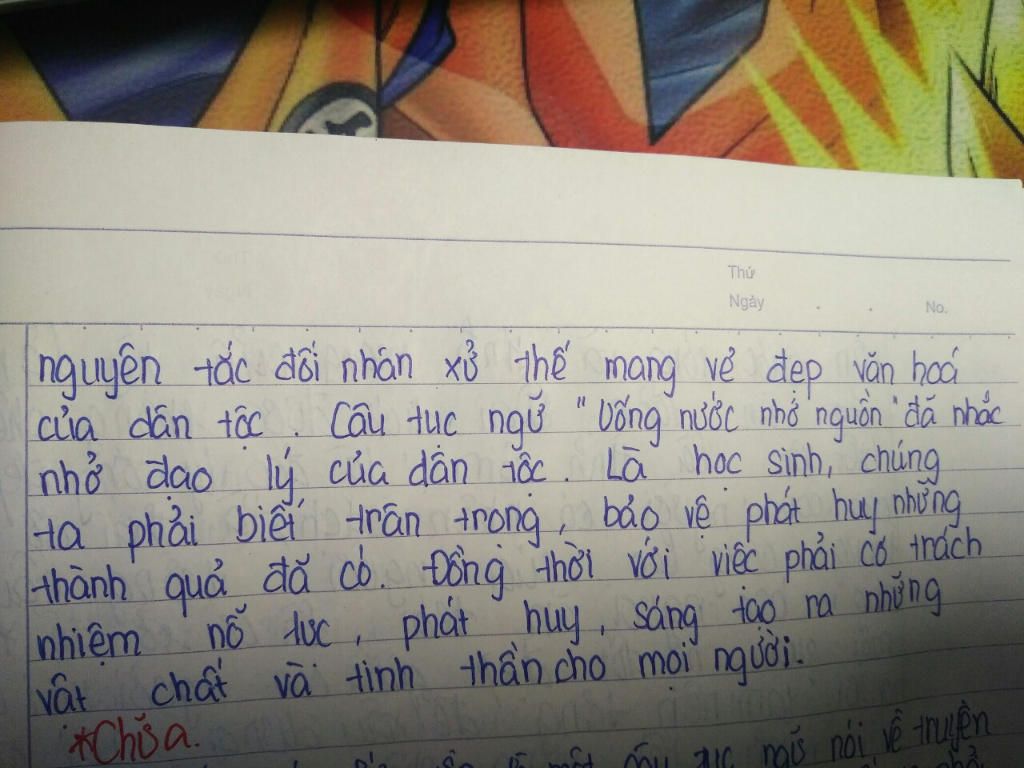 Thứ
Ngày . . No.
nguyên tắc đối nhân xử thế mang vẻ đẹp văn hoá
của dân tộc. Câu tục ngữ "Uống nước nhớ nguồn" đã nhắc
nhở đạo lý của dân tộc. Là học sinh, chúng
ta phải biết trân trọng, bảo vệ phát huy những
thành quả đã có. Đồng thời với việc phải có trách
nhiệm nỗ lực, phát huy, sáng tạo ra những
vật chất và tinh thần cho mọi người.
*Chữa.
là một câu tục ngữ nói về truyền